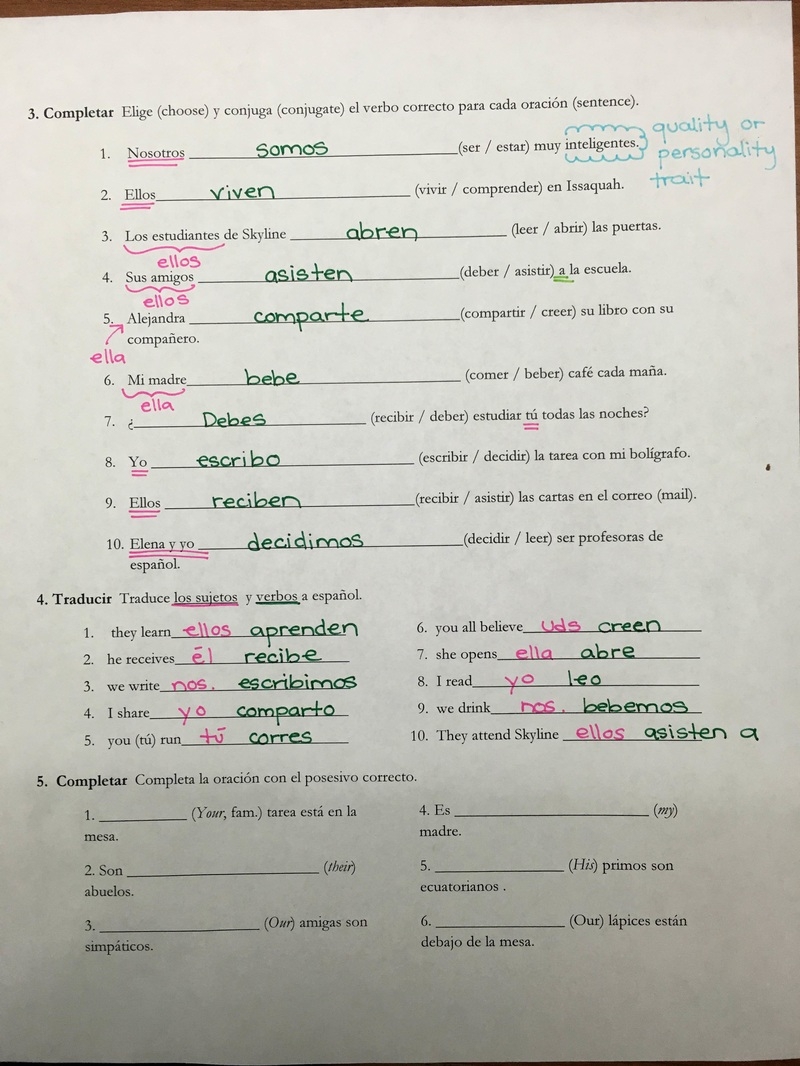 3. Completar Elige (choose) y conjuga (conjugate) el verbo correcto para cada oración (sentence).
1. Nosotros somos (ser / estar) muy inteligentes. quality or
personality
trait
2. Ellos viven (vivir / comprender) en Issaquah.
3. Los estudiantes de Skyline abren (leer / abrir) las puertas.
ellos
4. Sus amigos asisten (deber / asistir) a la escuela.
ellos
5. Alejandra comparte (compartir / creer) su libro con su
compañero.
ella
6. Mi madre bebe (comer / beber) café cada maña.
ella
7. ¿ Debes (recibir / deber) estudiar tú todas las noches?
8. Yo escribo (escribir / decidir) la tarea con mi bolígrafo.
9. Ellos reciben (recibir / asistir) las cartas en el correo (mail).
10. Elena y yo decidimos (decidir / leer) ser profesoras de
español.
4. Traducir Traduce los sujetos y verbos a español.
1. they learn ellos aprenden
2. he receives él recibe
3. we write nos. escribimos
4. I share yo comparto
5. you (tú) run tú corres
6. you all believe uds creen
7. she opens ella abre
8. I read yo leo
9. we drink nos. bebemos
10. They attend Skyline ellos asisten a
5. Completar Completa la oración con el posesivo correcto.
1. ____ (Your, fam.) tarea está en la
mesa.
2. Son ____ (their)
abuelos.
3. ____ (Our) amigas son
simpáticos.
4. Es ____ (my)
madre.
5. ____ (His) primos son
ecuatorianos .
6. ____ (Our) lápices están
debajo de la mesa.